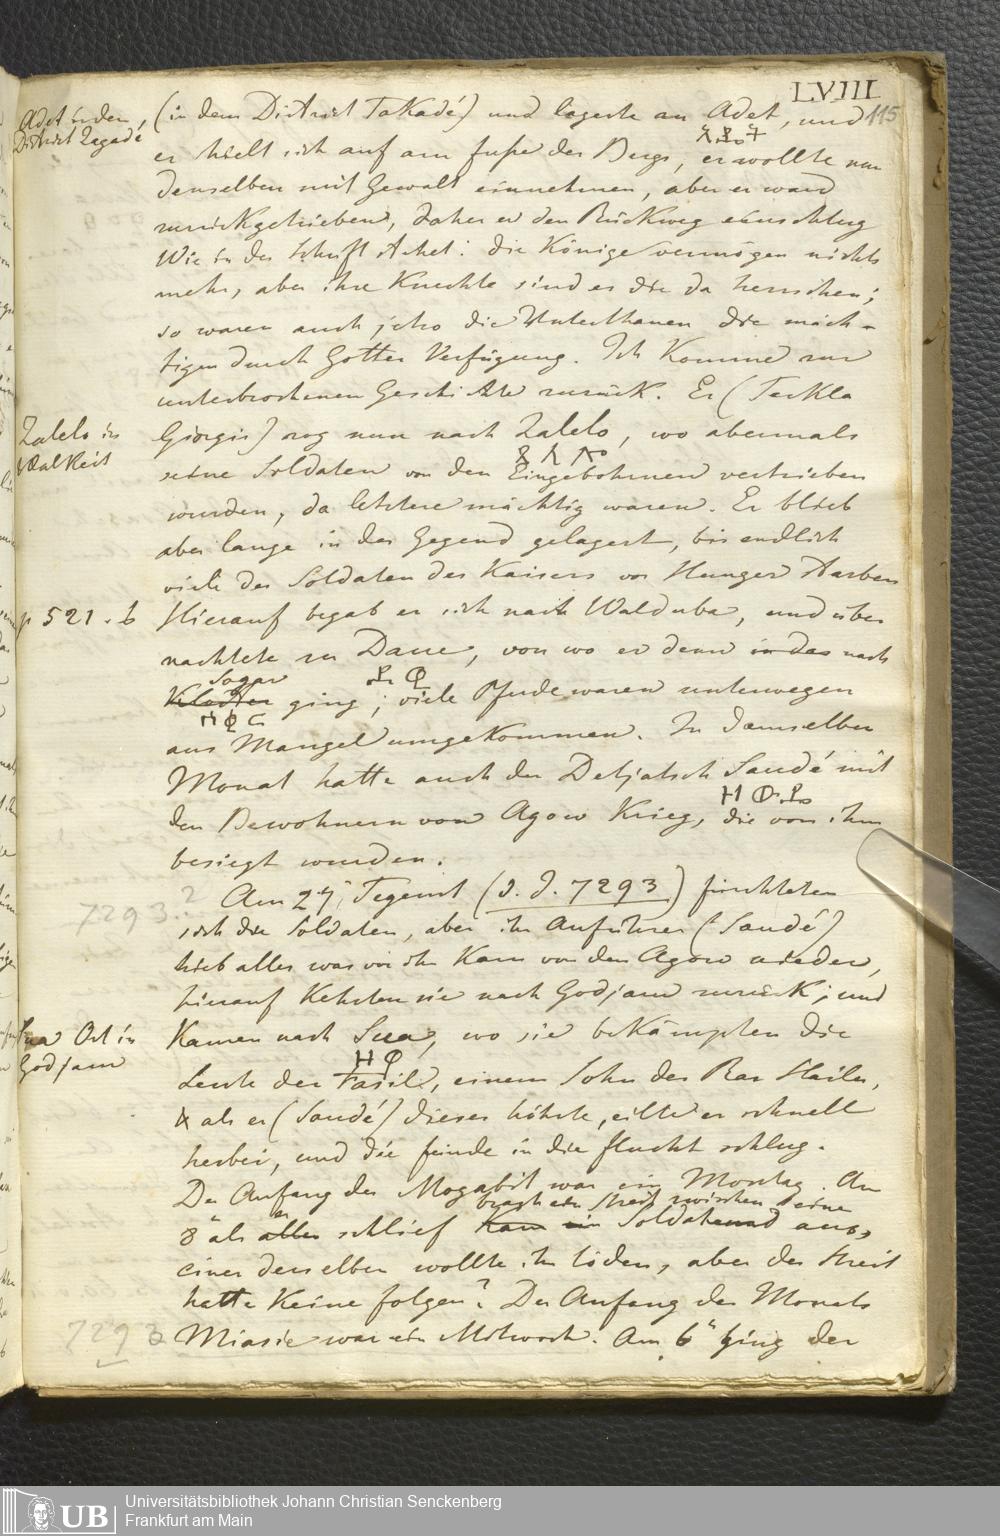 LVIII
115
Adet in den,
District Zagadé
(in dem District TaKadé) und lagerte an Adet, und
er hielt sich auf am fuße des Bergs, er wollte nun
denselben mit Gewalt einnehmen, aber er ward
zurückgetrieben, daher er den Rückweg einschlug
Wie in der Schrift stehet: die Könige vermögen nichts
mehr, aber ihre Knechte sind es die da herrschen;
so waren auch jetzo die Unterthanen die mäch-
tigen durch Gottes Verfügung. Ich Komme zur
unterbrochenen Geschichte zurück. Er (Teckla
Zalelo in
WalKeit
Giorgis) zog nun nach Zalelo, wo abermals
seine Soldaten von den Eingebohrnen vertrieben
wurden, da letztere mächtig waren. Er blieb
aber lange in der Gegend gelagert, bis endlich
viele der Soldaten des Kaisers vor Hunger starben
p 521. b
Hierauf begab er sich nach Walduba, und über
nachtete zu Daue, von wo er denn in das nach
Sogar
Kloster ging; viele Pferde waren unterwegen
ዞቈር
aus Mangel umgeKommen. In demselben
Monat hatte auch der Detjatsch Saudé mit
den Bewohnern von Agow Krieg, die von ihm
besiegt wurden.
7293.?
Am 27, Tegemt (d. J. 7293) fürchteten
sich die Soldaten, aber ihr Anführer (Saudé)
hieb alles was vor ihn Kam von den Agow nieder,
hierauf Kehrten sie nach Godjam zurück; und
Sua Ort in
Godjam
Kamen nach Sua, wo sie beKämpften die
Leute des Fasil, einem Sohn des Ras Hailu,
als er (Saudé) dieses hörte, eilte er schnell
herbei, und die feinde in die flucht schlug.
Der Anfang des Mogabit war ein Montag. Am
brach ein Streit zwischen seine
8" als er alles schlief Kam ein Soldaten aus,
einer derselben wollte ihn töden, aber der Streit
hatte Keine folgen? Der Anfang des Monats
7293
Miasie war ein Mitwoch. Am 6" ging der
UB
Universitätsbibliothek Johann Christian Senckenberg
Frankfurt am Main